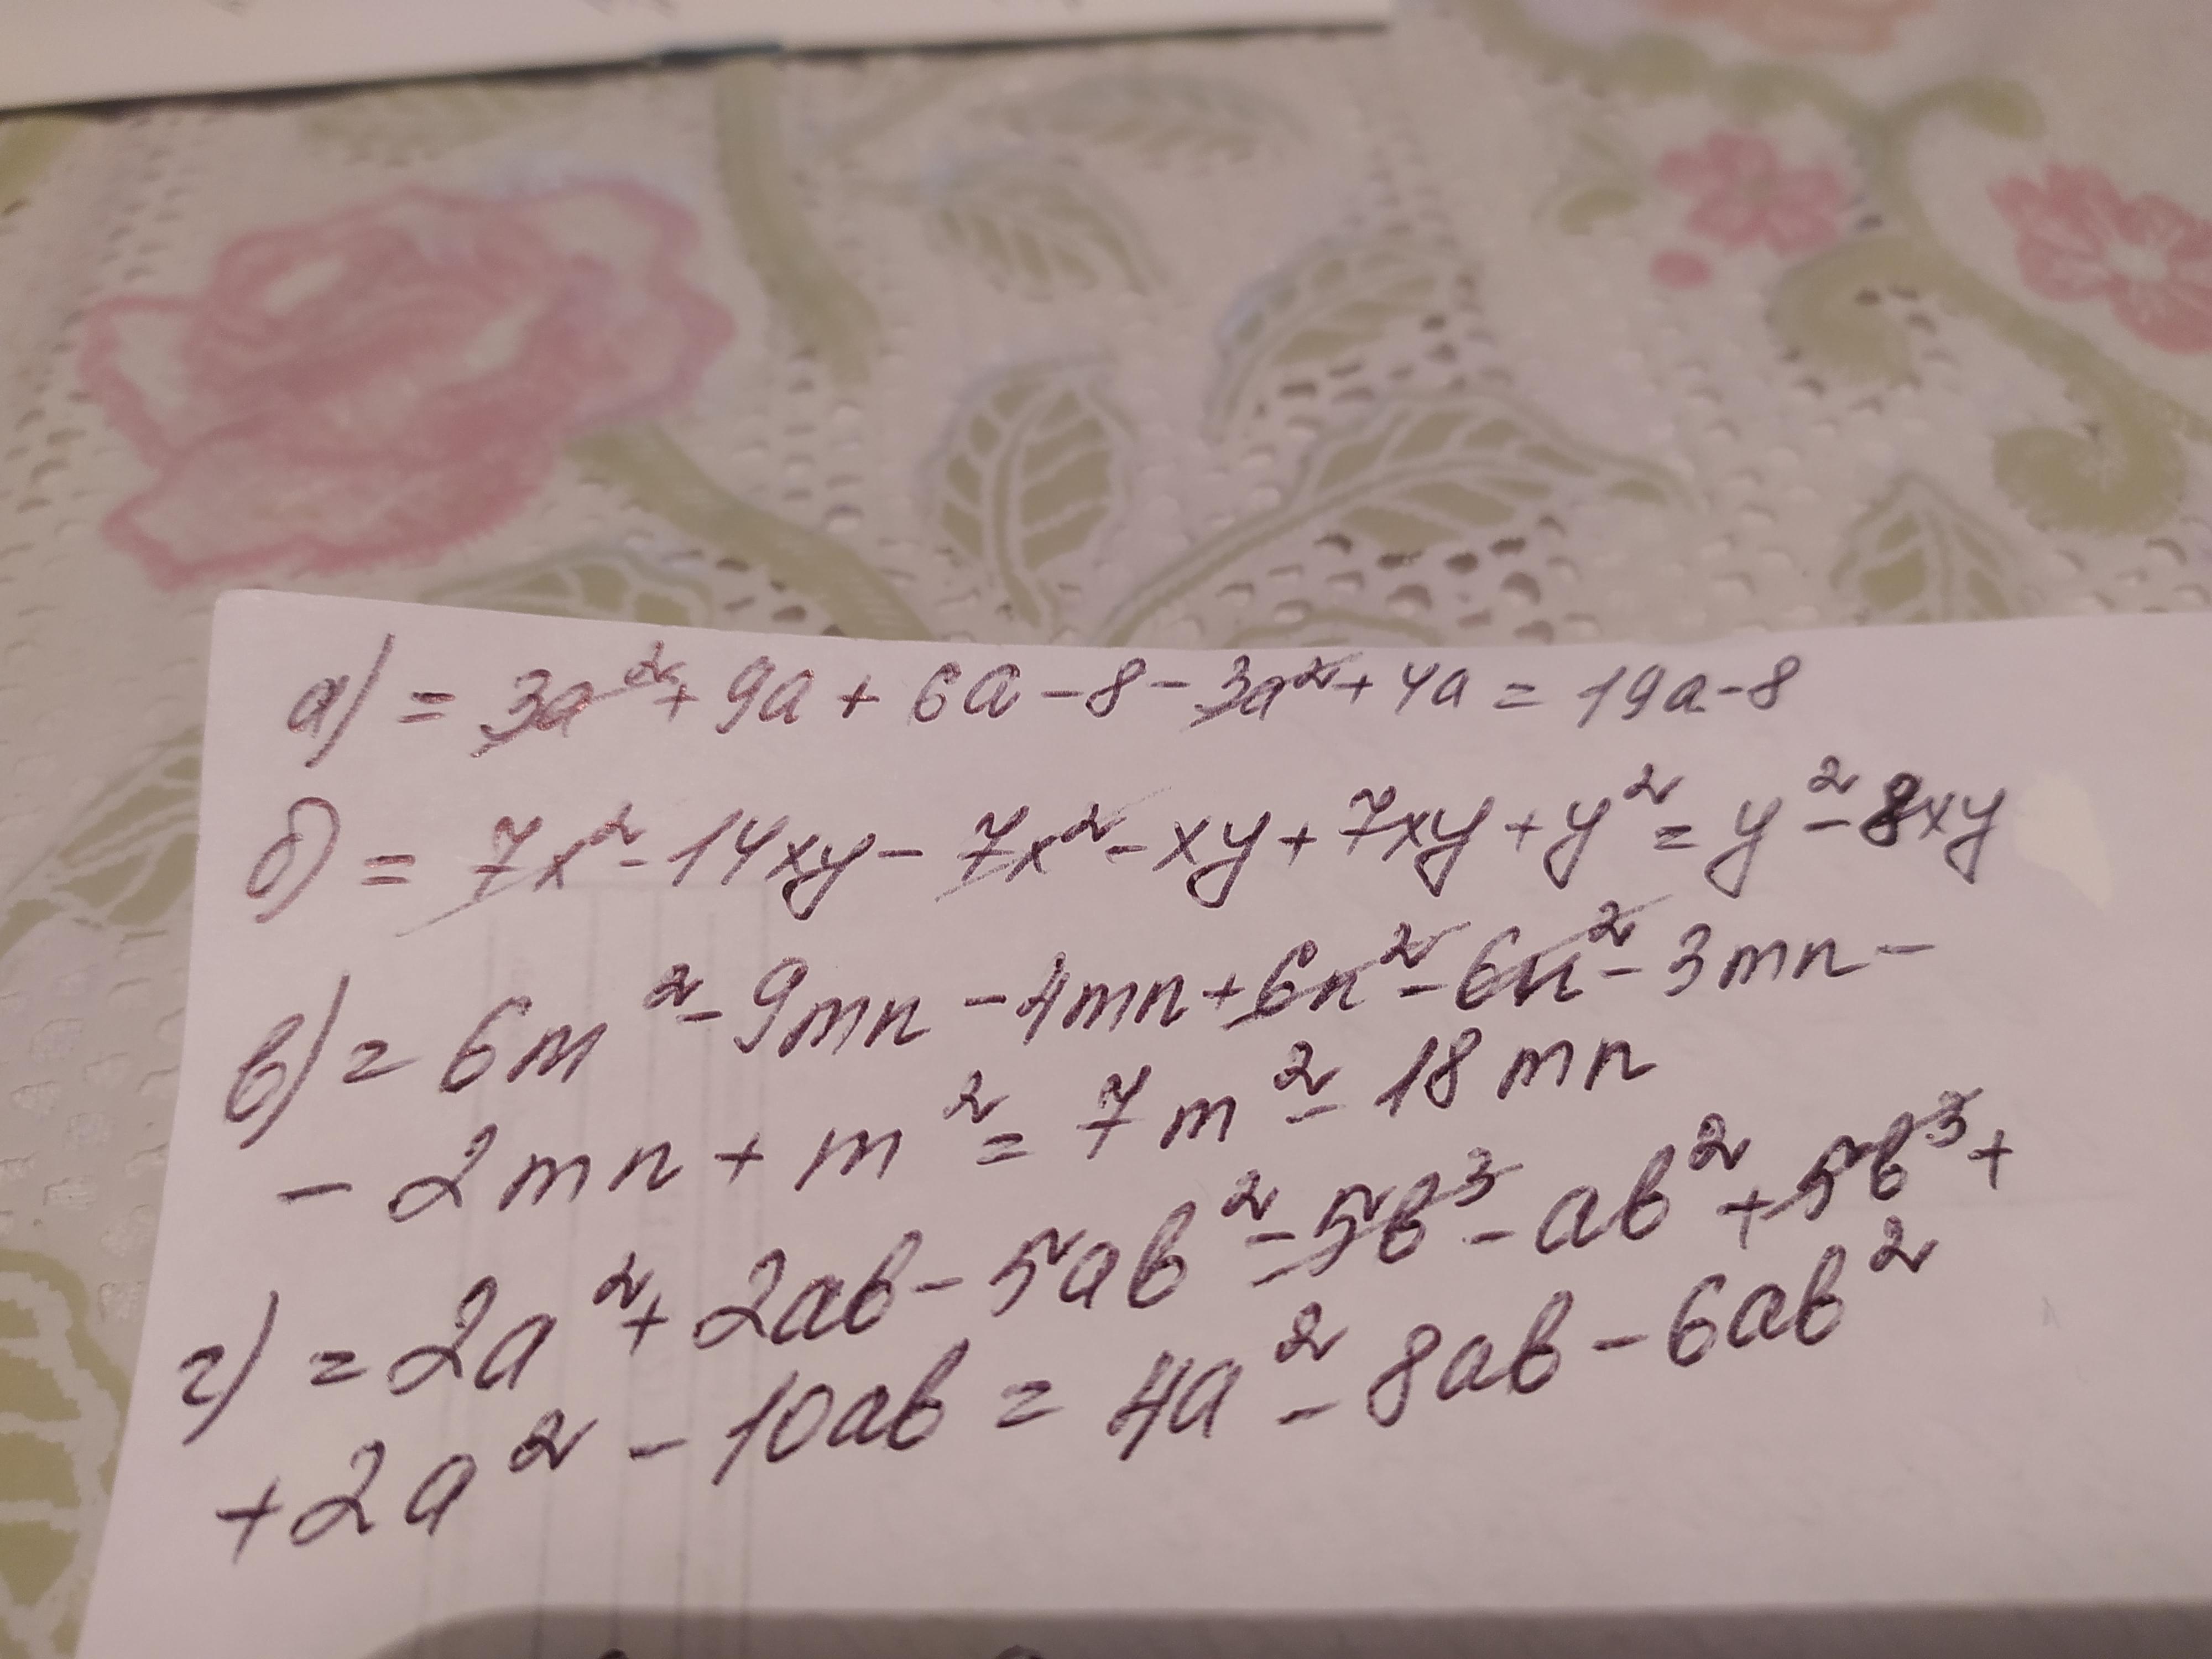 а) = 3a² + 9a + 6a - 8 - 3a² + 4a = 19a - 8
б) = 7x² - 14xy - 7x² - xy + 7xy + y² = y² - 8xy
в) = 6m² - 9mn - 4mn + 6n² - 6n² - 3mn -
- 2mn + m² = 7m² - 18mn
г) = 2a² + 2ab - 5ab² - 5b³ - ab² + 5b³ +
+ 2a² - 10ab = 4a² - 8ab - 6ab²